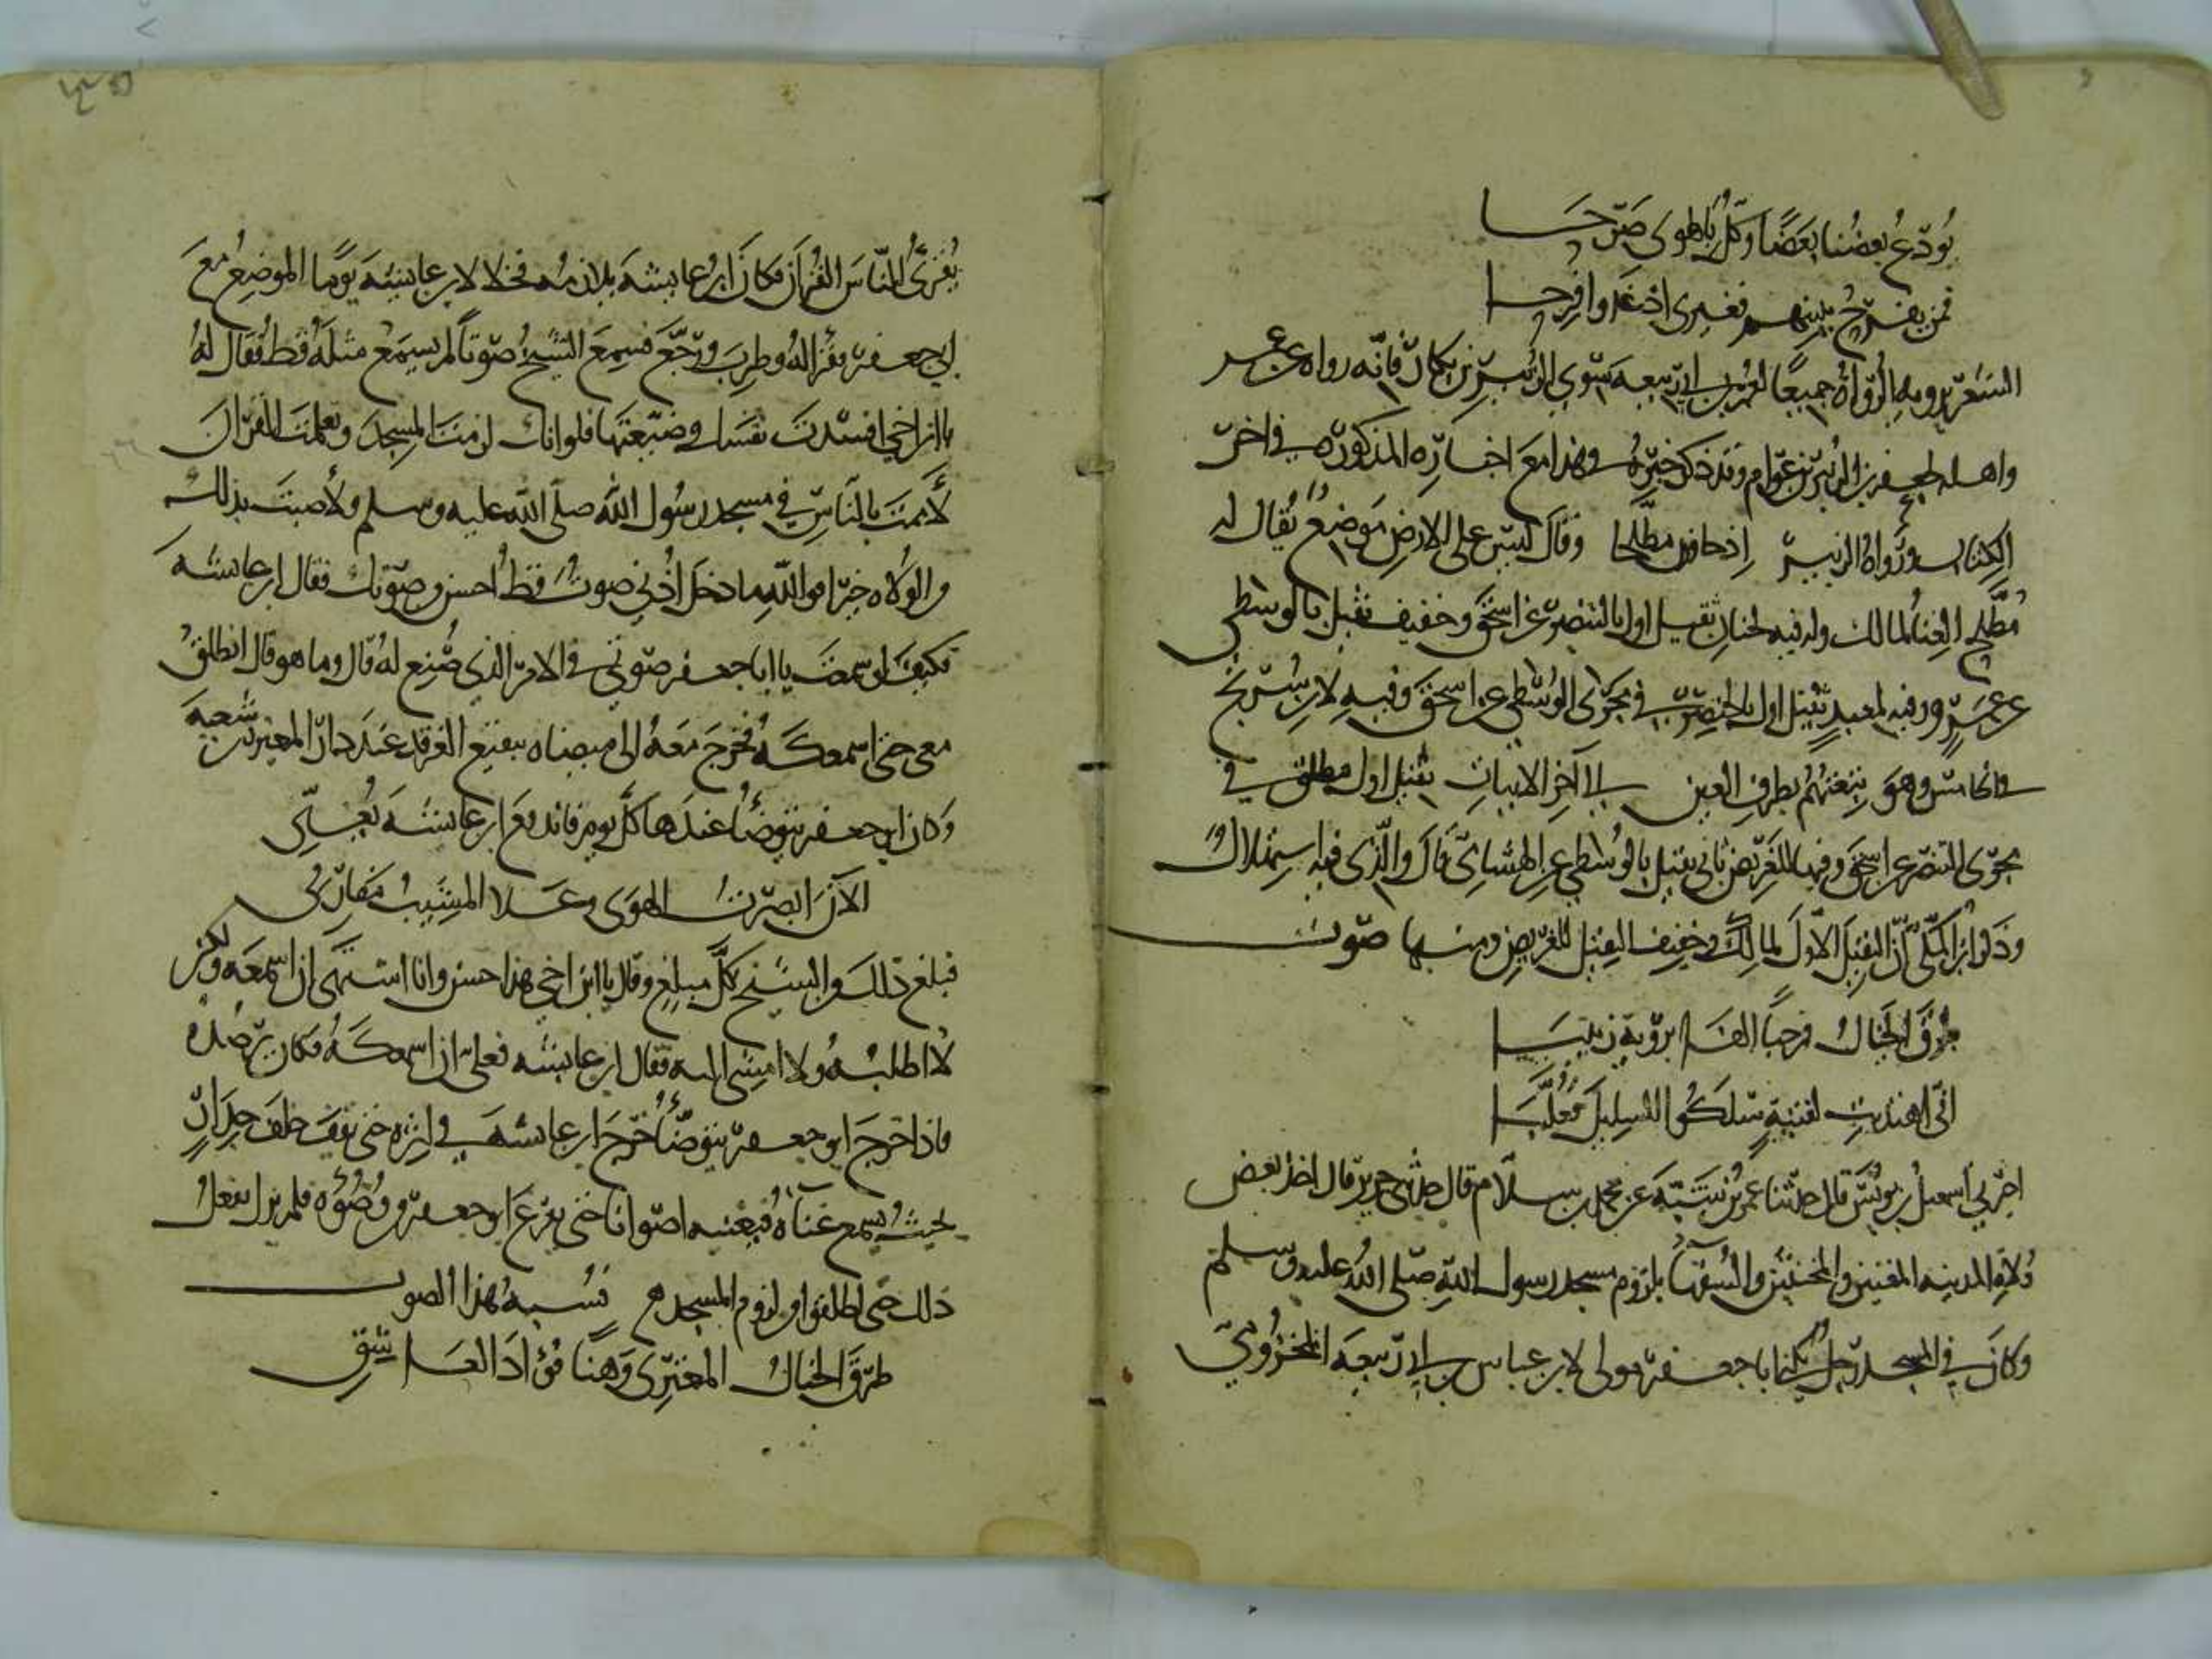 يُودّعُ بعضُنا بعَضًا وَكلّ بالهوى صَرّحَا
فمن يفرحْ ببينهم فغيرى اذ غدوا فرحا
الشعر يرويه الرّواةُ جميعًا لعمر بن ابى رَبيعه سَوى الزبيرِ بن بكار فانّه رواه عن عمه
واهله لجعفر بن الزبير بن عوّام وقد ذكر خبرهُ فى هذا مع اخبارِه المذكوره فى اخر
الكتاب ورَواهُ الزبير اِذ جاوزن مطلحا وقال ليسَ على الارضِ مَوضعٌ يُقال له
مُطّلح الغناُ لمالك وله فيه لحنان ثقيل اول بالبنصر عن اسحق وخفيف ثقيل بالوسطى
عن عمرو وفيه لمعبدٍ ثقيل اول بالخنصر فى مجرى الوُسْطى عن اسحق وفيهِ لابن سُريج
فى الخامس وهو بنعتهُم بطرف العين الى آخر الابيات ثقيل اول مطلق فى
مجرى البنصر عن اسحق وفيها للغريض ثانى ثقيل بالوسطى عن الهشامى قال والذى فيه استهلال
وذكر ابن المكّى انّ الثقيل الاوّل لمالك وخفيف الثقيل للغريض ومنها صَوت
طرقَ الخيالُ مرحبًا الفا برؤية زينبَا
انّى اهتديتِ لفتيةٍ سَلكُوا السليلَ فعُلّيَبَا
اخبرنى اسمعيل بن يونس قال حدثنا عمر بن شبّهَ عن محمد بن سلام قال حدثنى جرير قال اخذ بعض
وُلاةِ المدينه المغنين والمخنثين والسُفهآ بلزوم مسجد رسول اللّهِ صَلّى اللهُ عليه وسلم
وكانَ فى المسجد رجل يُكْنا ابا جعفر مولى لابن عباس بن ابى ربيعَه المخزُومىّ
يُقرىُ النّاسَ القُرآنَ فكانَ ابنُ عايشهَ يلازمُه فخلا لابن عايشهَ يومًا الموضعُ معَ
ابى جعفر فقرا لهُ وطرِبَ ورَجّعَ فسمِعَ الشيخُ صَوتاً لم يسمَع مثلَهُ قط فقال لهُ
يا ابن اخى افسَدت نفسَك وضيّعتَها فلو انك لزمتَ المسجدَ وتعلمتَ القرآنَ
لأممتَ بالنّاسِ فى مسجد رسُول اللّهِ صلّى اللّه عليه وسلم ولأصبتَ بذلك
من الوُلاه خيرًا فواللّهِ ما دخلَ اُذُنى صوتٌ قطُ احسن من صَوتك فقال ابن عايشه
فكيفَ لو سمعتَ يا ابا جعفر صَوتى فى الامر الذى صُنِع لهُ قال وما هو قال انطلق
معى حتى اسمعكهُ فخرجَ معَهُ الى ميضاه ببقيع الغرقد عند دار المغيره بن شعبهَ
وكان ابو جعفر يتوضّأُ عندَها كلّ يوم فاندفعَ ابن عايشهَ يُغنّى
الآنَ ابصرتُ الهوَى وعَلا المشيبُ مفارقى
فبلغَ ذلك من الشيخ كلّ مبلغ وقال يا ابن اخى هذا حسن وانا اشتهى ان اسمعَه ولكن
لا اطلبُه ولا امشى اليه فقال ابن عايشه فعلىّ ان اسمعكَهُ فكان يرصُدُه
فاذا خرجَ ابو جعفر يتوضّأُ خرجَ ابن عايشه فى اثرِه حتى يقفَ خلف جدارٍ
بحيثُ يسمع غنآهُ فيغنيه اصواتًا حتى يفرُغَ ابو جعفر من وُضُوئه فلم يزل يفعلُ
ذلك حتى اطلقوا من لزوم المسجد نسبه هذا الصوت
طرَقَ الخيالُ المعترى وَهنًا فؤادَ العاشقِ